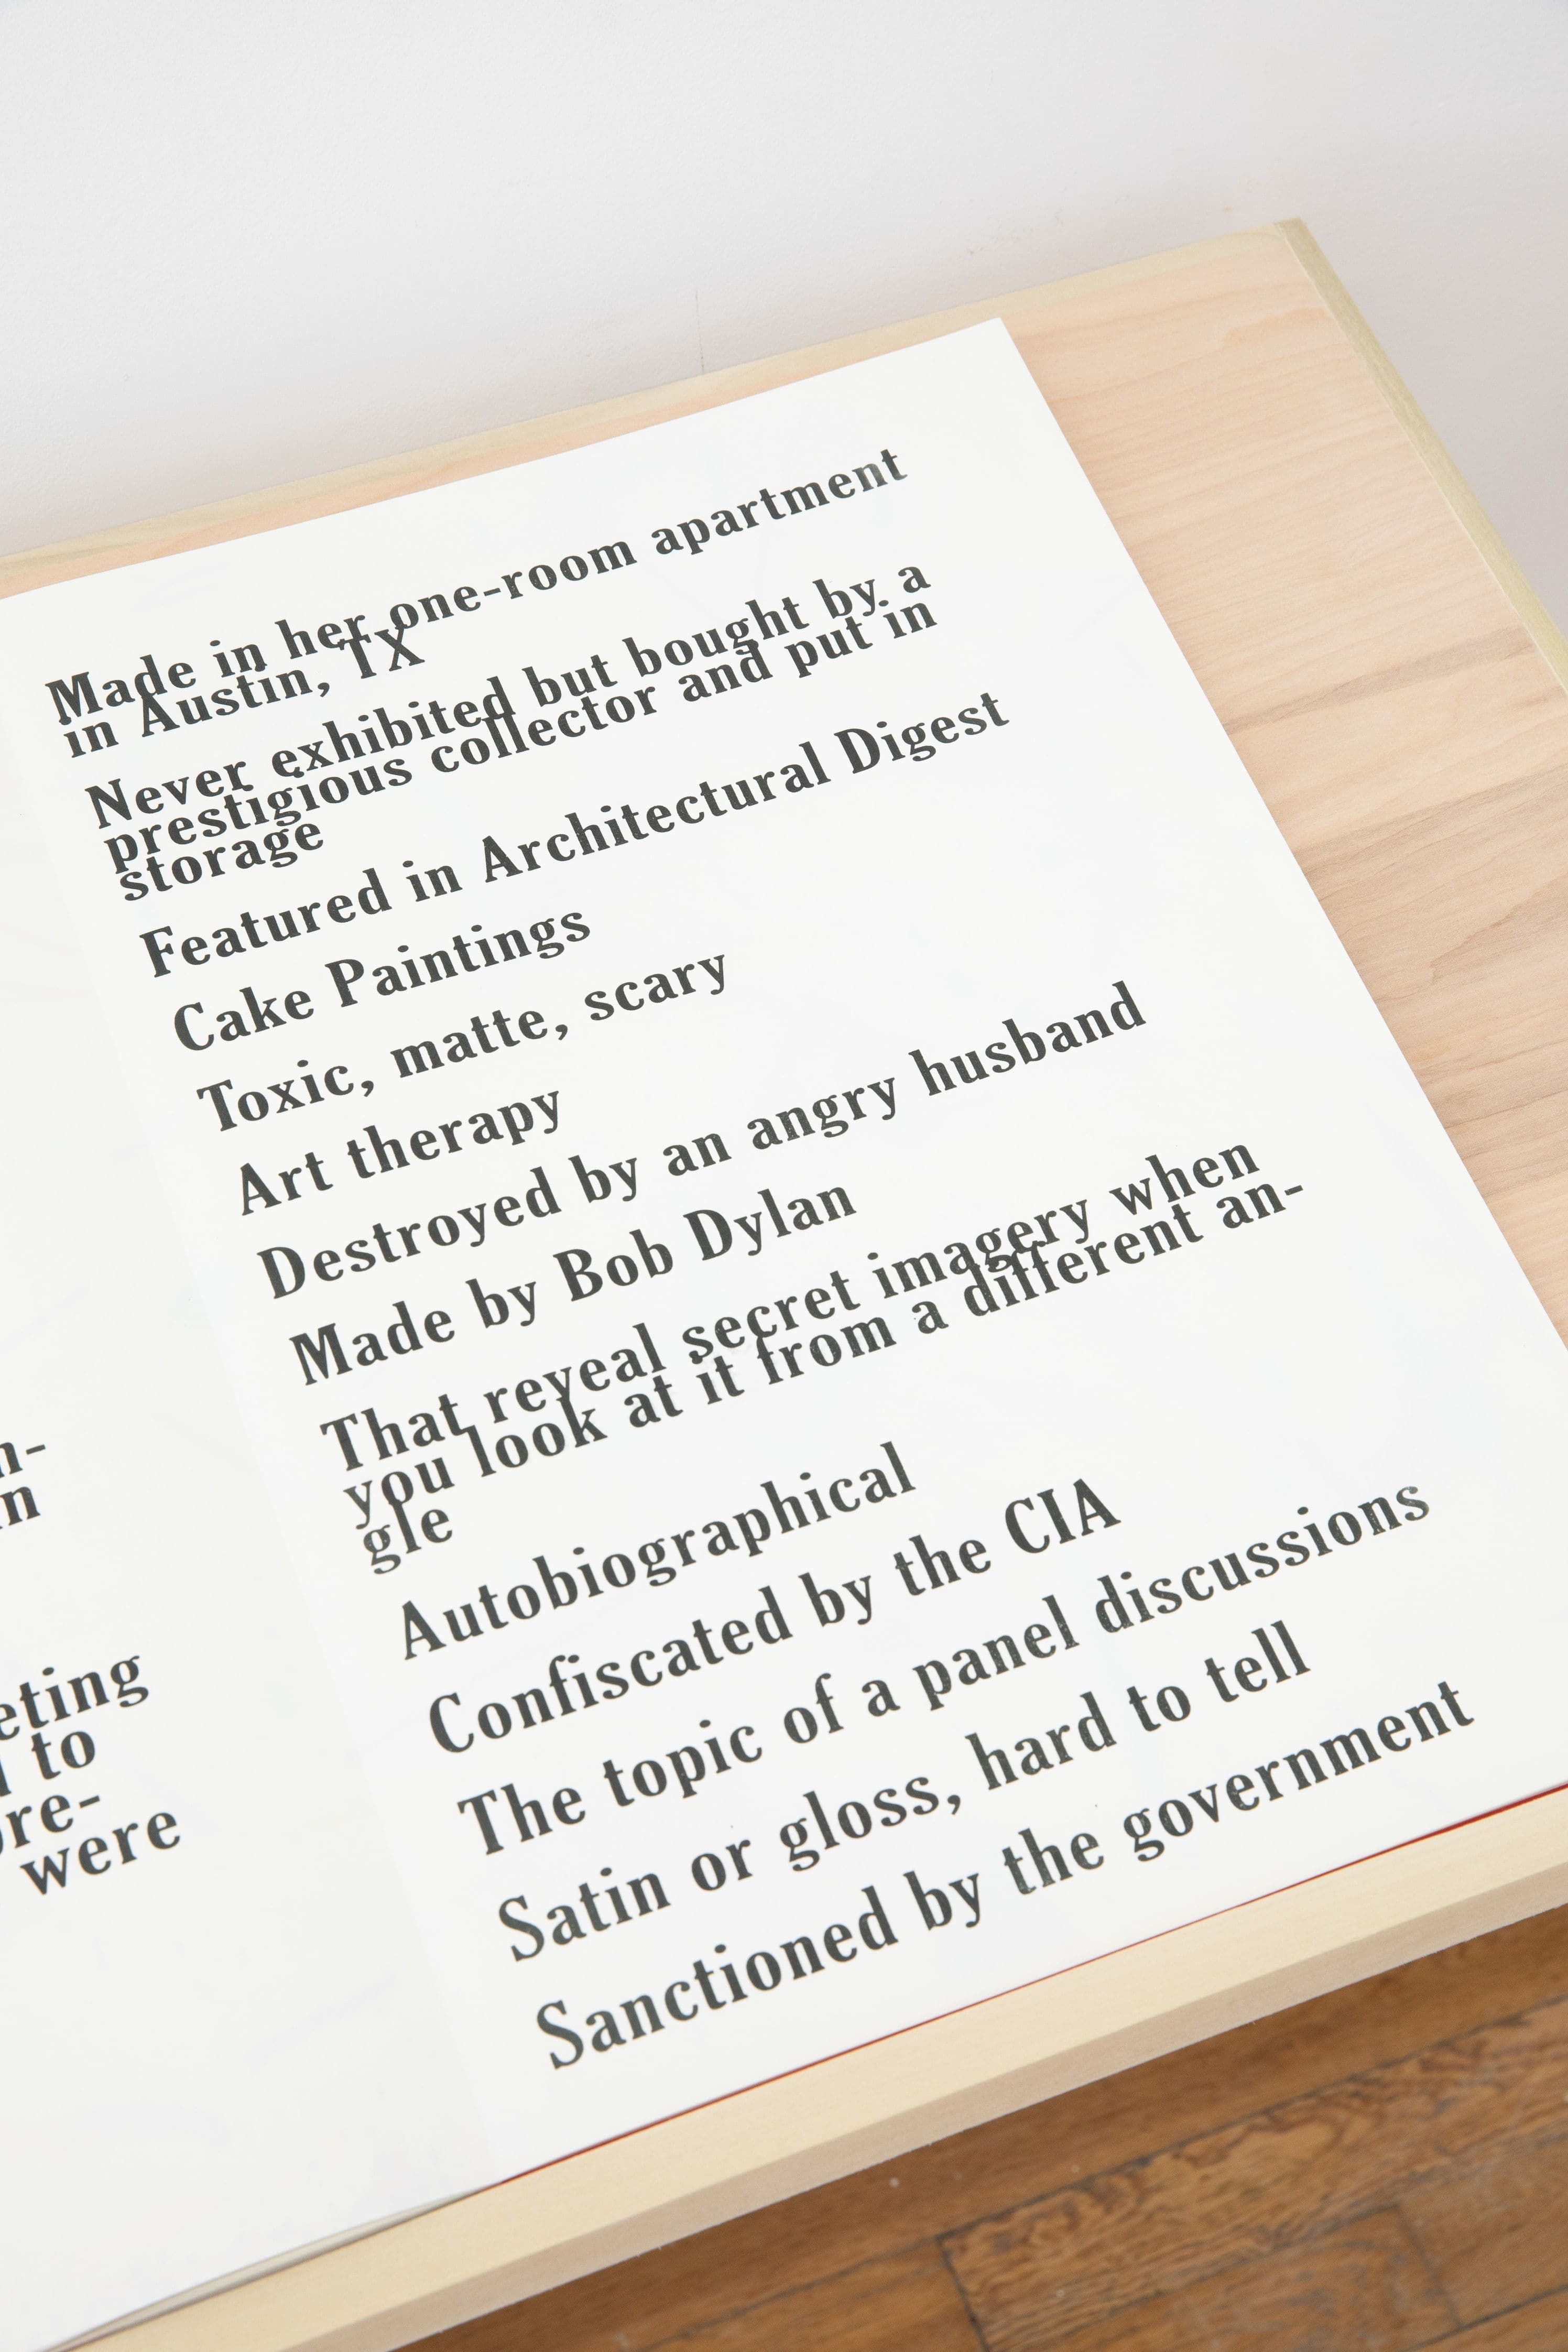 n-
n
eting
to
ore-
were
Made in her one-room apartment
in Austin, TX
Never exhibited but bought by a
prestigious collector and put in
storage
Featured in Architectural Digest
Cake Paintings
Toxic, matte, scary
Art therapy
Destroyed by an angry husband
Made by Bob Dylan
That reveal secret imagery when
you look at it from a different an-
gle
Autobiographical
Confiscated by the CIA
The topic of a panel discussions
Satin or gloss, hard to tell
Sanctioned by the government